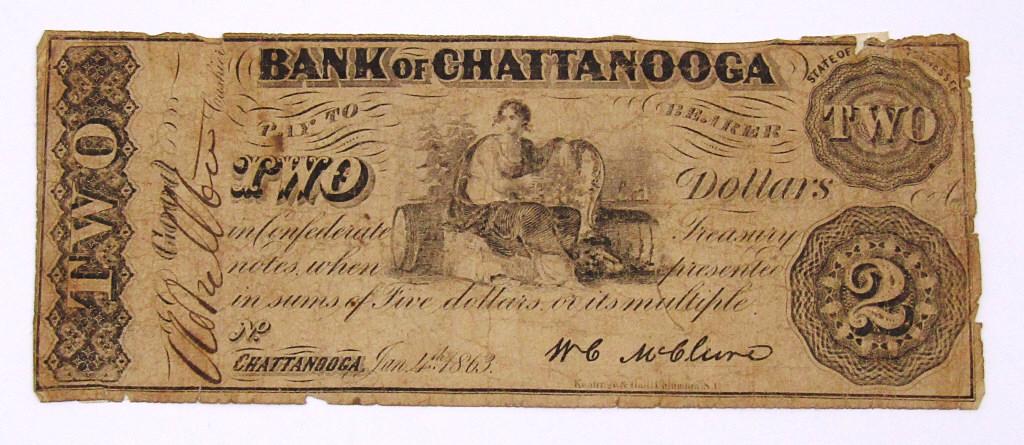 BANK OF CHATTANOOGA
STATE OF TENNESSEE
PAY TO BEARER
TWO
TWO
TWO Dollars
in Confederate Treasury
notes, when presented
in sums of Five dollars or its multiple
No
2
CHATTANOOGA, Jan. 4th 1863.
W C McClure
Keatinge & Ball, Columbia, S.C.
Cashier